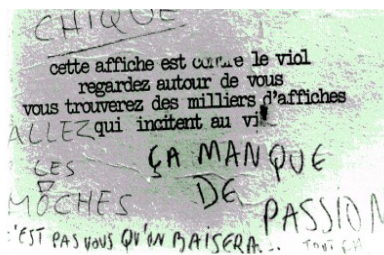 CHIQUE
cette affiche est contre le viol
regardez autour de vous
vous trouverez des milliers d'affiches
ALLEZ qui incitent au
ÇA MANQUE
LES
DE
MOCHES
PASSION
C'EST PAS VOUS QU'ON BAISERA...